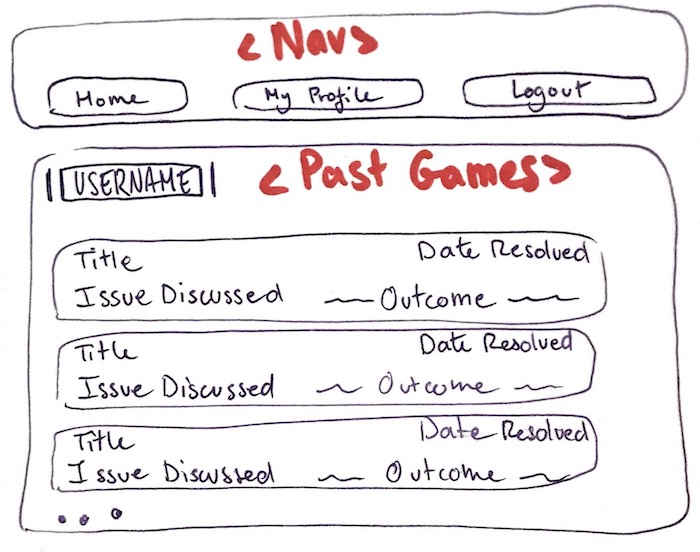 <Nav>
Home My Profile Logout
USERNAME <Past Games>
Title Date Resolved
Issue Discussed Outcome
Title Date Resolved
Issue Discussed Outcome
Title Date Resolved
Issue Discussed Outcome